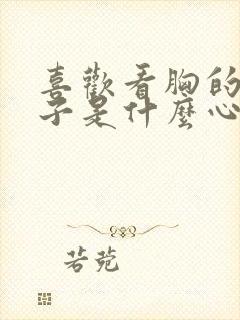 喜歡看胸的
子是什麼心
若菀